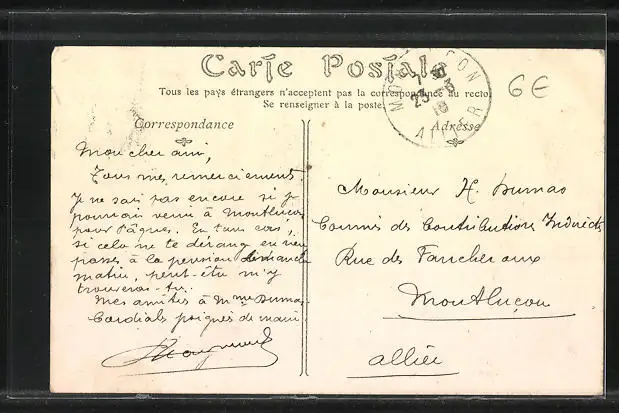 Carte Postale
Tous les pays étrangers n'acceptent pas la correspondance au recto.
Se renseigner à la poste.
Correspondance
Adresse
6€
ALLIER
23
Mon cher ami,
Tous mes remerciements.
Je ne sais pas encore si je
pourrai venir à Montluçon
pour Pâques. En tous cas,
si cela ne te dérange en rien
passes à la pension dimanche
matin, peut-être m'y
trouveras-tu.
Mes amitiés à Mme Dumas
Cordiales poignées de main.
Monsieur H. Dumas
Commis des Contributions Indirectes
Rue des Faucheraux
Montluçon
Allier